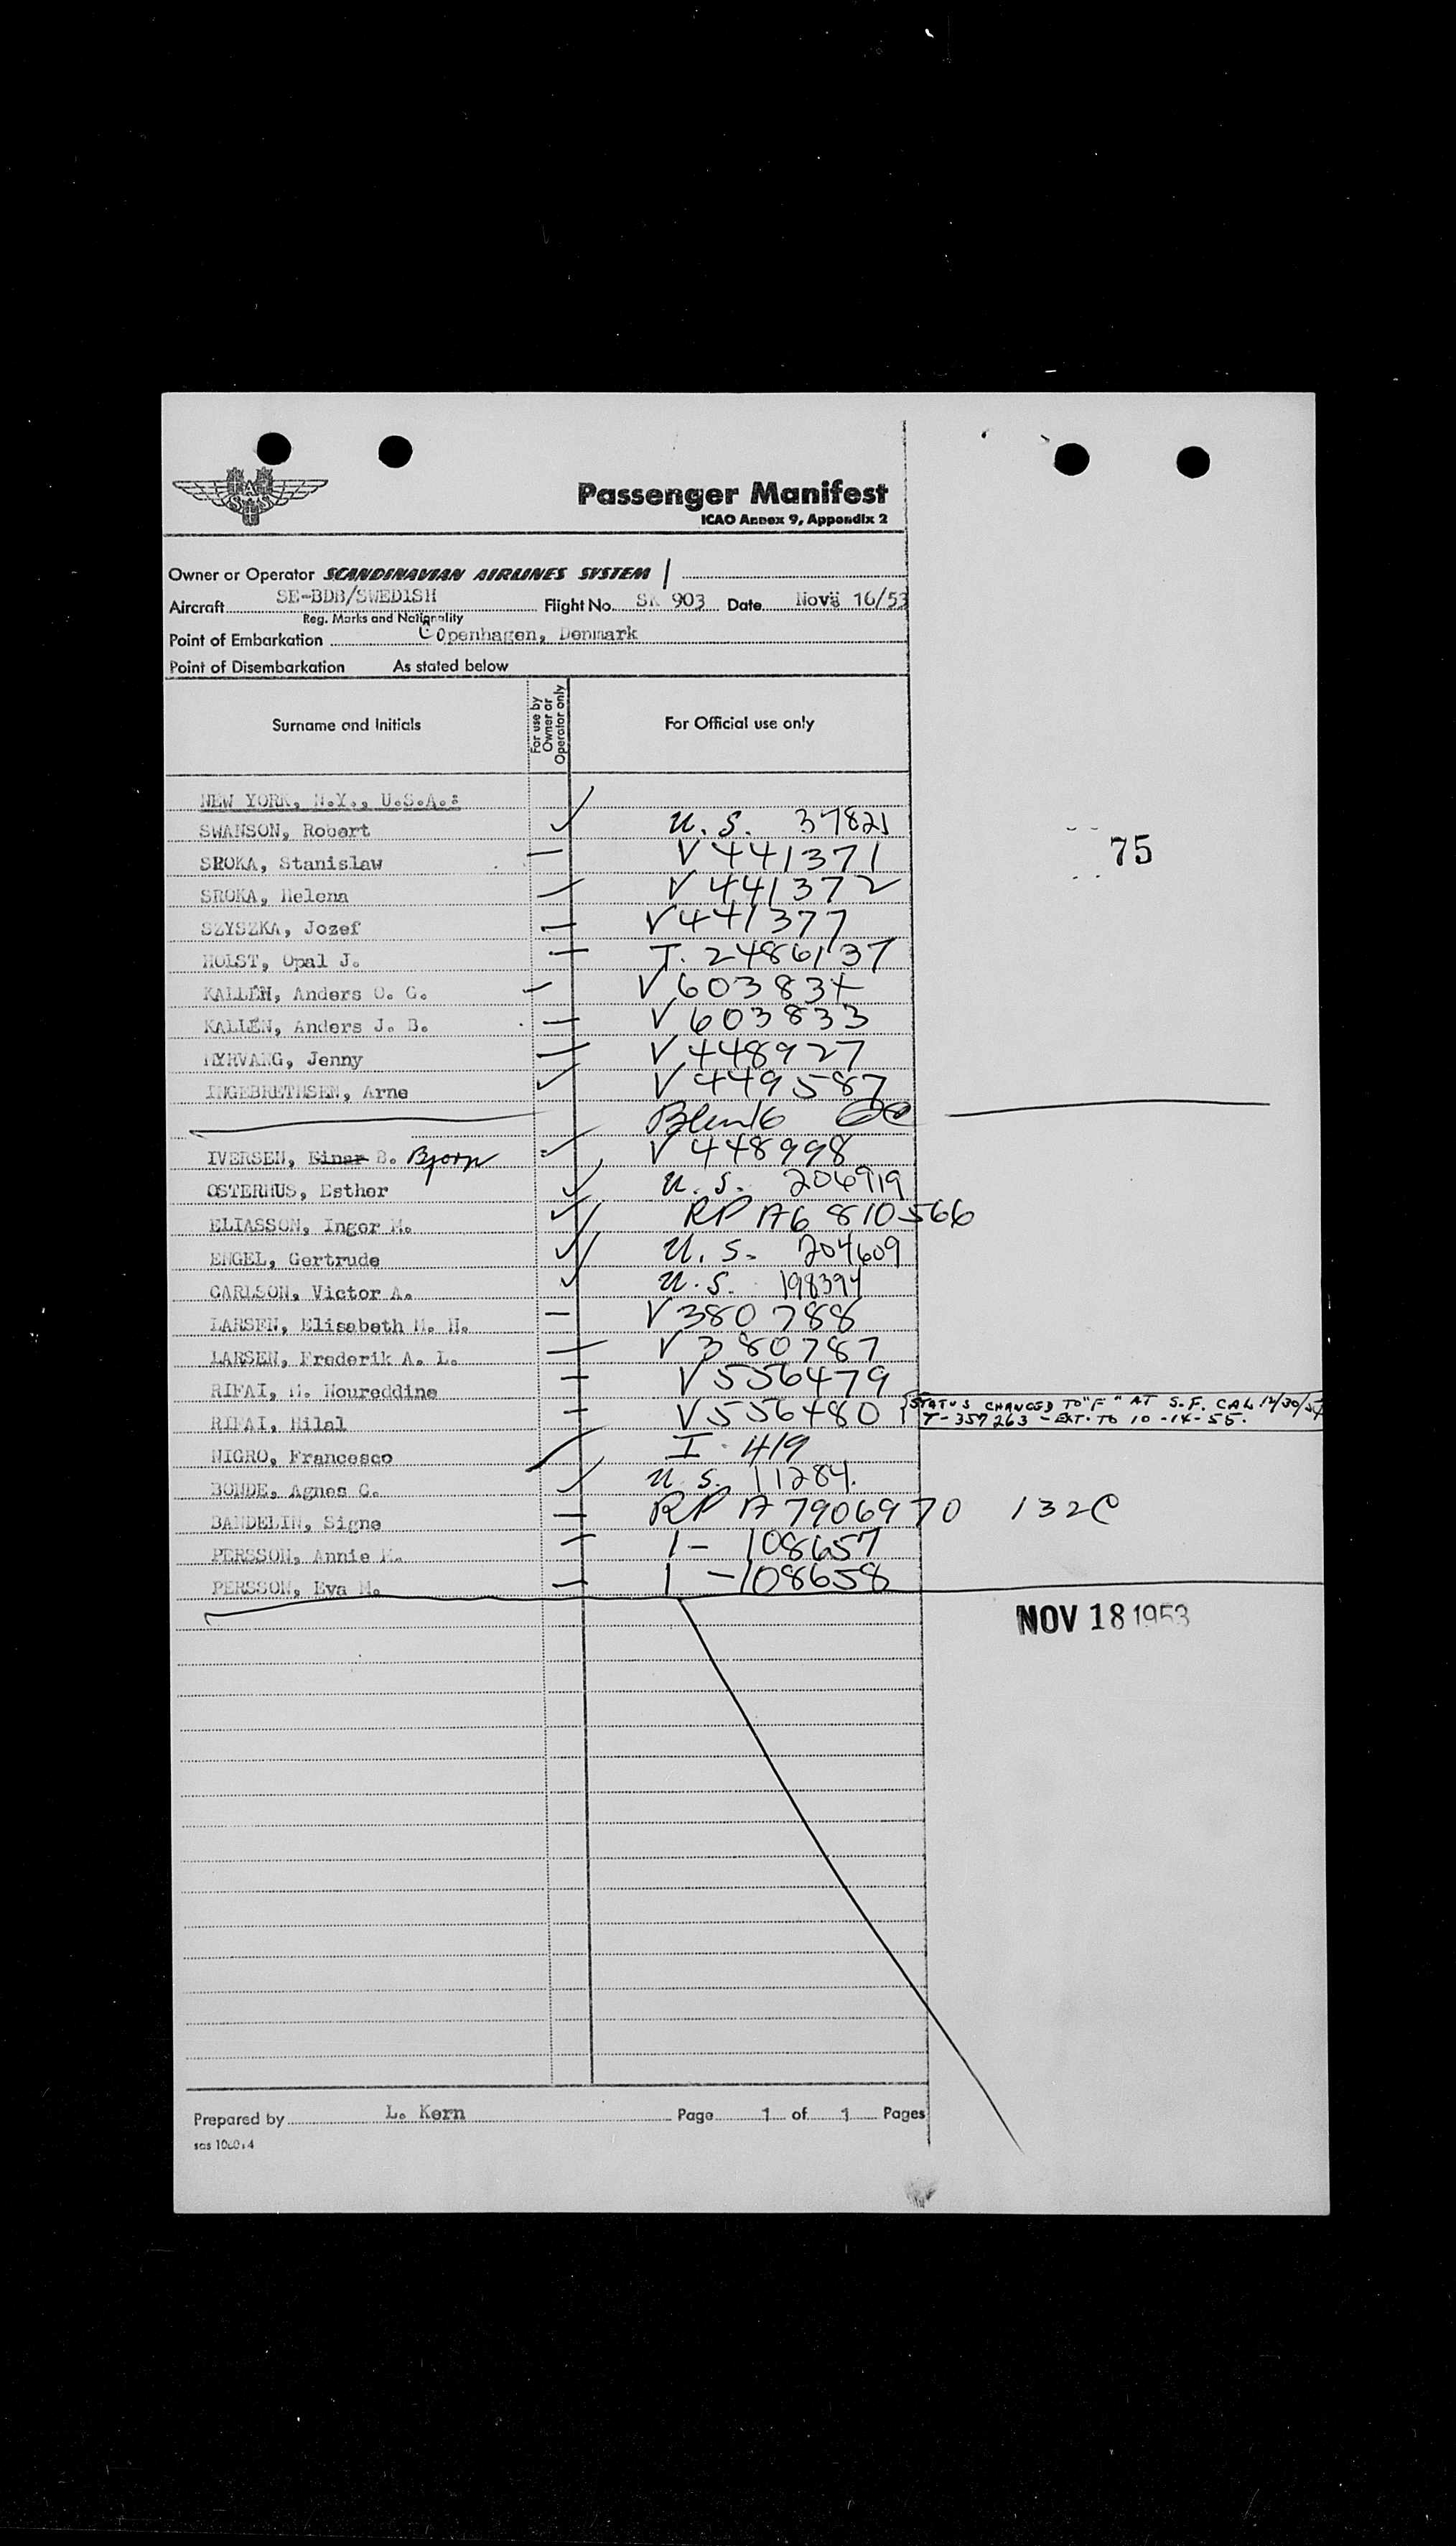 SAS
Passenger Manifest
ICAO Annex 9, Appendix 2
Owner or Operator SCANDINAVIAN AIRLINES SYSTEM
Aircraft SE-BDB/SWEDISH Flight No. SK 903 Date Nov 16/53
Reg. Marks and Nationality
Point of Embarkation Copenhagen, Denmark
Point of Disembarkation As stated below
Surname and Initials For use by Owner or Operator only For Official use only
NEW YORK, N.Y., U.S.A.:
SWANSON, Robert U.S. 37821
75
SROKA, Stanislaw V 441371
SROKA, Helena V 441372
SZYSZKA, Jozef V 441377
HOLST, Opal J. T. 2486137
KALLÉN, Anders O. G. V 603834
KALLÉN, Anders J. B. V 603833
MYRVANG, Jenny V 448927
INGEBRETHSEN, Arne V 449587
IVERSEN, Einar B. Bjorn V 448998
OSTERHUS, Esther U.S. 206919
ELIASSON, Inger M. RP A6 810566
ENGEL, Gertrude U.S. 204609
CARLSON, Victor A. U.S. 198394
LARSEN, Elisabeth M. H. V 380788
LARSEN, Frederik A. L. V 380787
RIFAI, M. Noureddine V 556479
RIFAI, Hilal V 556480 STATUS CHANGED TO "F" AT S.F. CAL 12/30/54
T-357263 - EXT. TO 10-14-55.
NIGRO, Francesco I-419
BONDE, Agnes C. U.S. 11284.
BANDELIN, Signe RP A 7906970 132C
PERSSON, Annie M. I- 108657
PERSSON, Eva M. I-108658
NOV 18 1953
Prepared by L. Kern Page 1 of 1 Pages